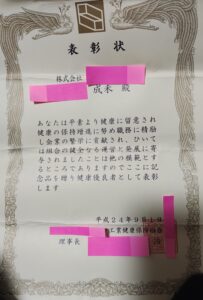 表彰状
株式会社
成末 殿
あなたは平素より健康に留意され
健康の保持増進に努め職務に精励
し企業の繁栄に貢献され、ひいて
は組合の健全なる運営と発展に寄
与されましたことは他の模範とす
るところでありますのでここに記
念品を贈り健康優良者として表彰
します
平成24年9月1日
工業健康保険組合
理事長